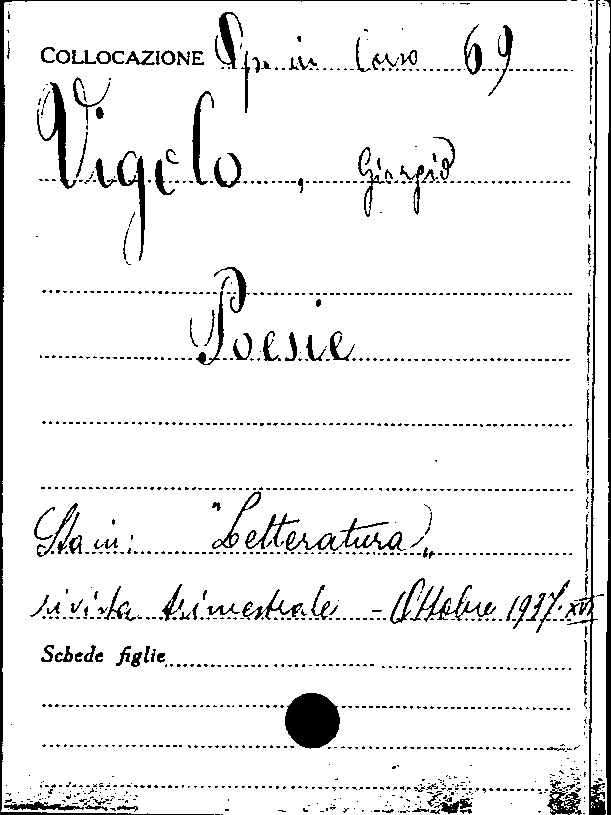 COLLOCAZIONE Op. in Corso 69
Vigolo, Giorgio
Poesie
Sta in: "Letteratura„
rivista trimestrale - Ottobre 1937-XVI
Schede figlie